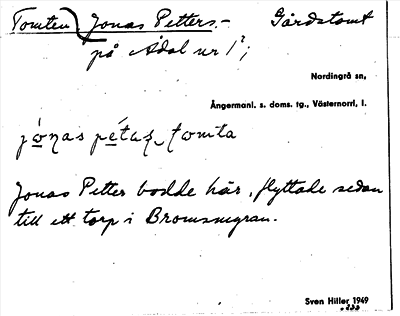 Tomten) Jonas Petters.- Gårdstomt
på Ådal nr 1²;
Nordingrå sn,
Ångermanl. s. doms. tg., Västernorrl, l.
Jonas Petter bodde här, flyttade sedan
till ett torp i Bromsmyran.
Sven Hiller 1949